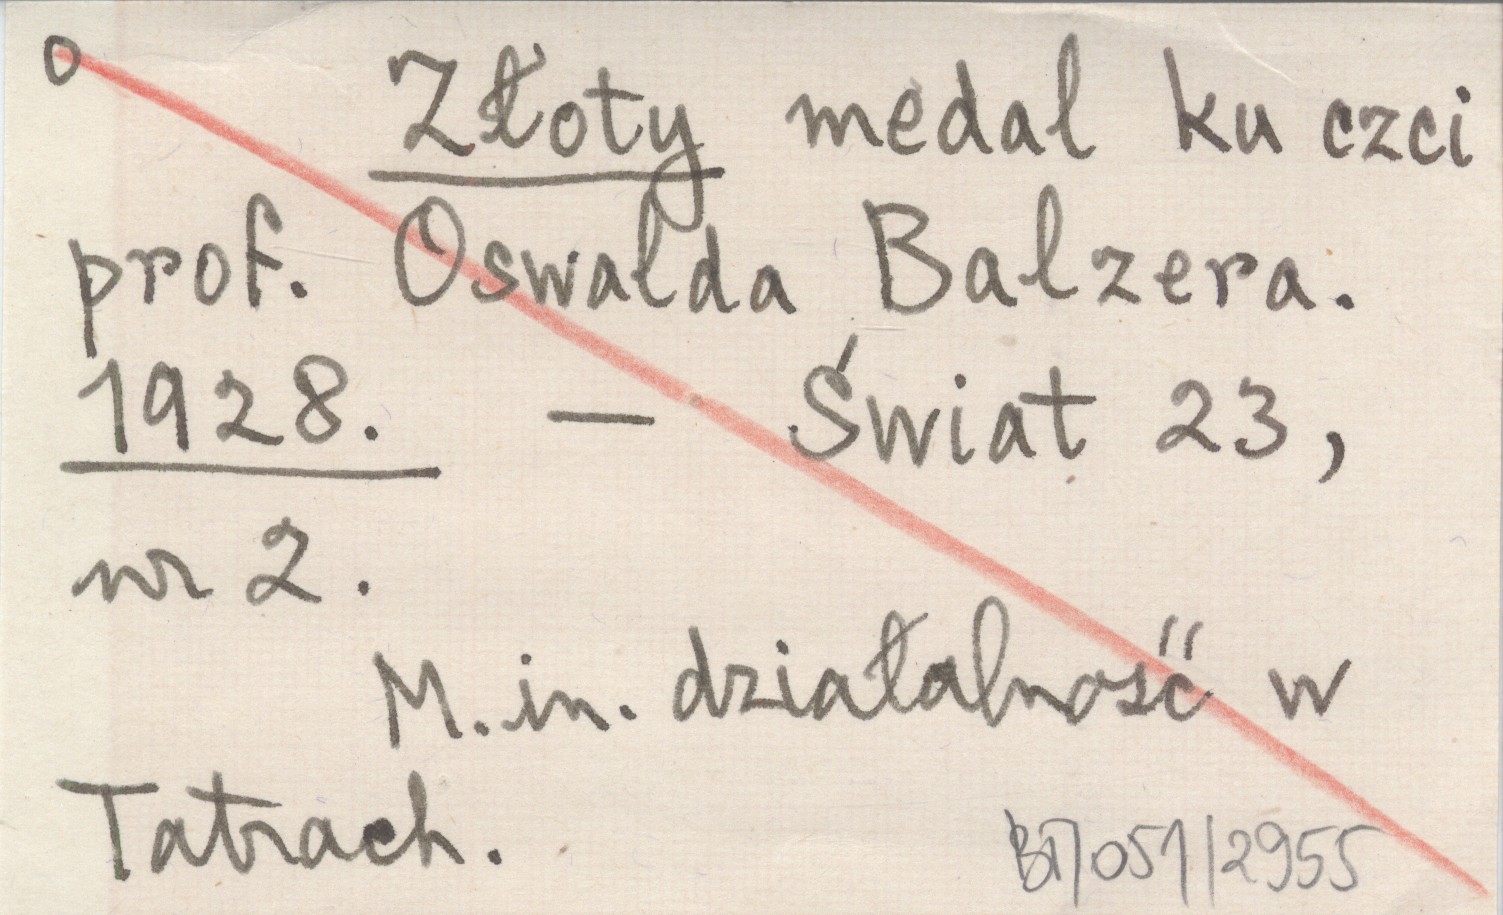 o Złoty medal ku czci
prof. Oswalda Balzera.
1928. — Świat 23,
nr 2.
M.in. działalność w
Tatrach.
BT/051/2955